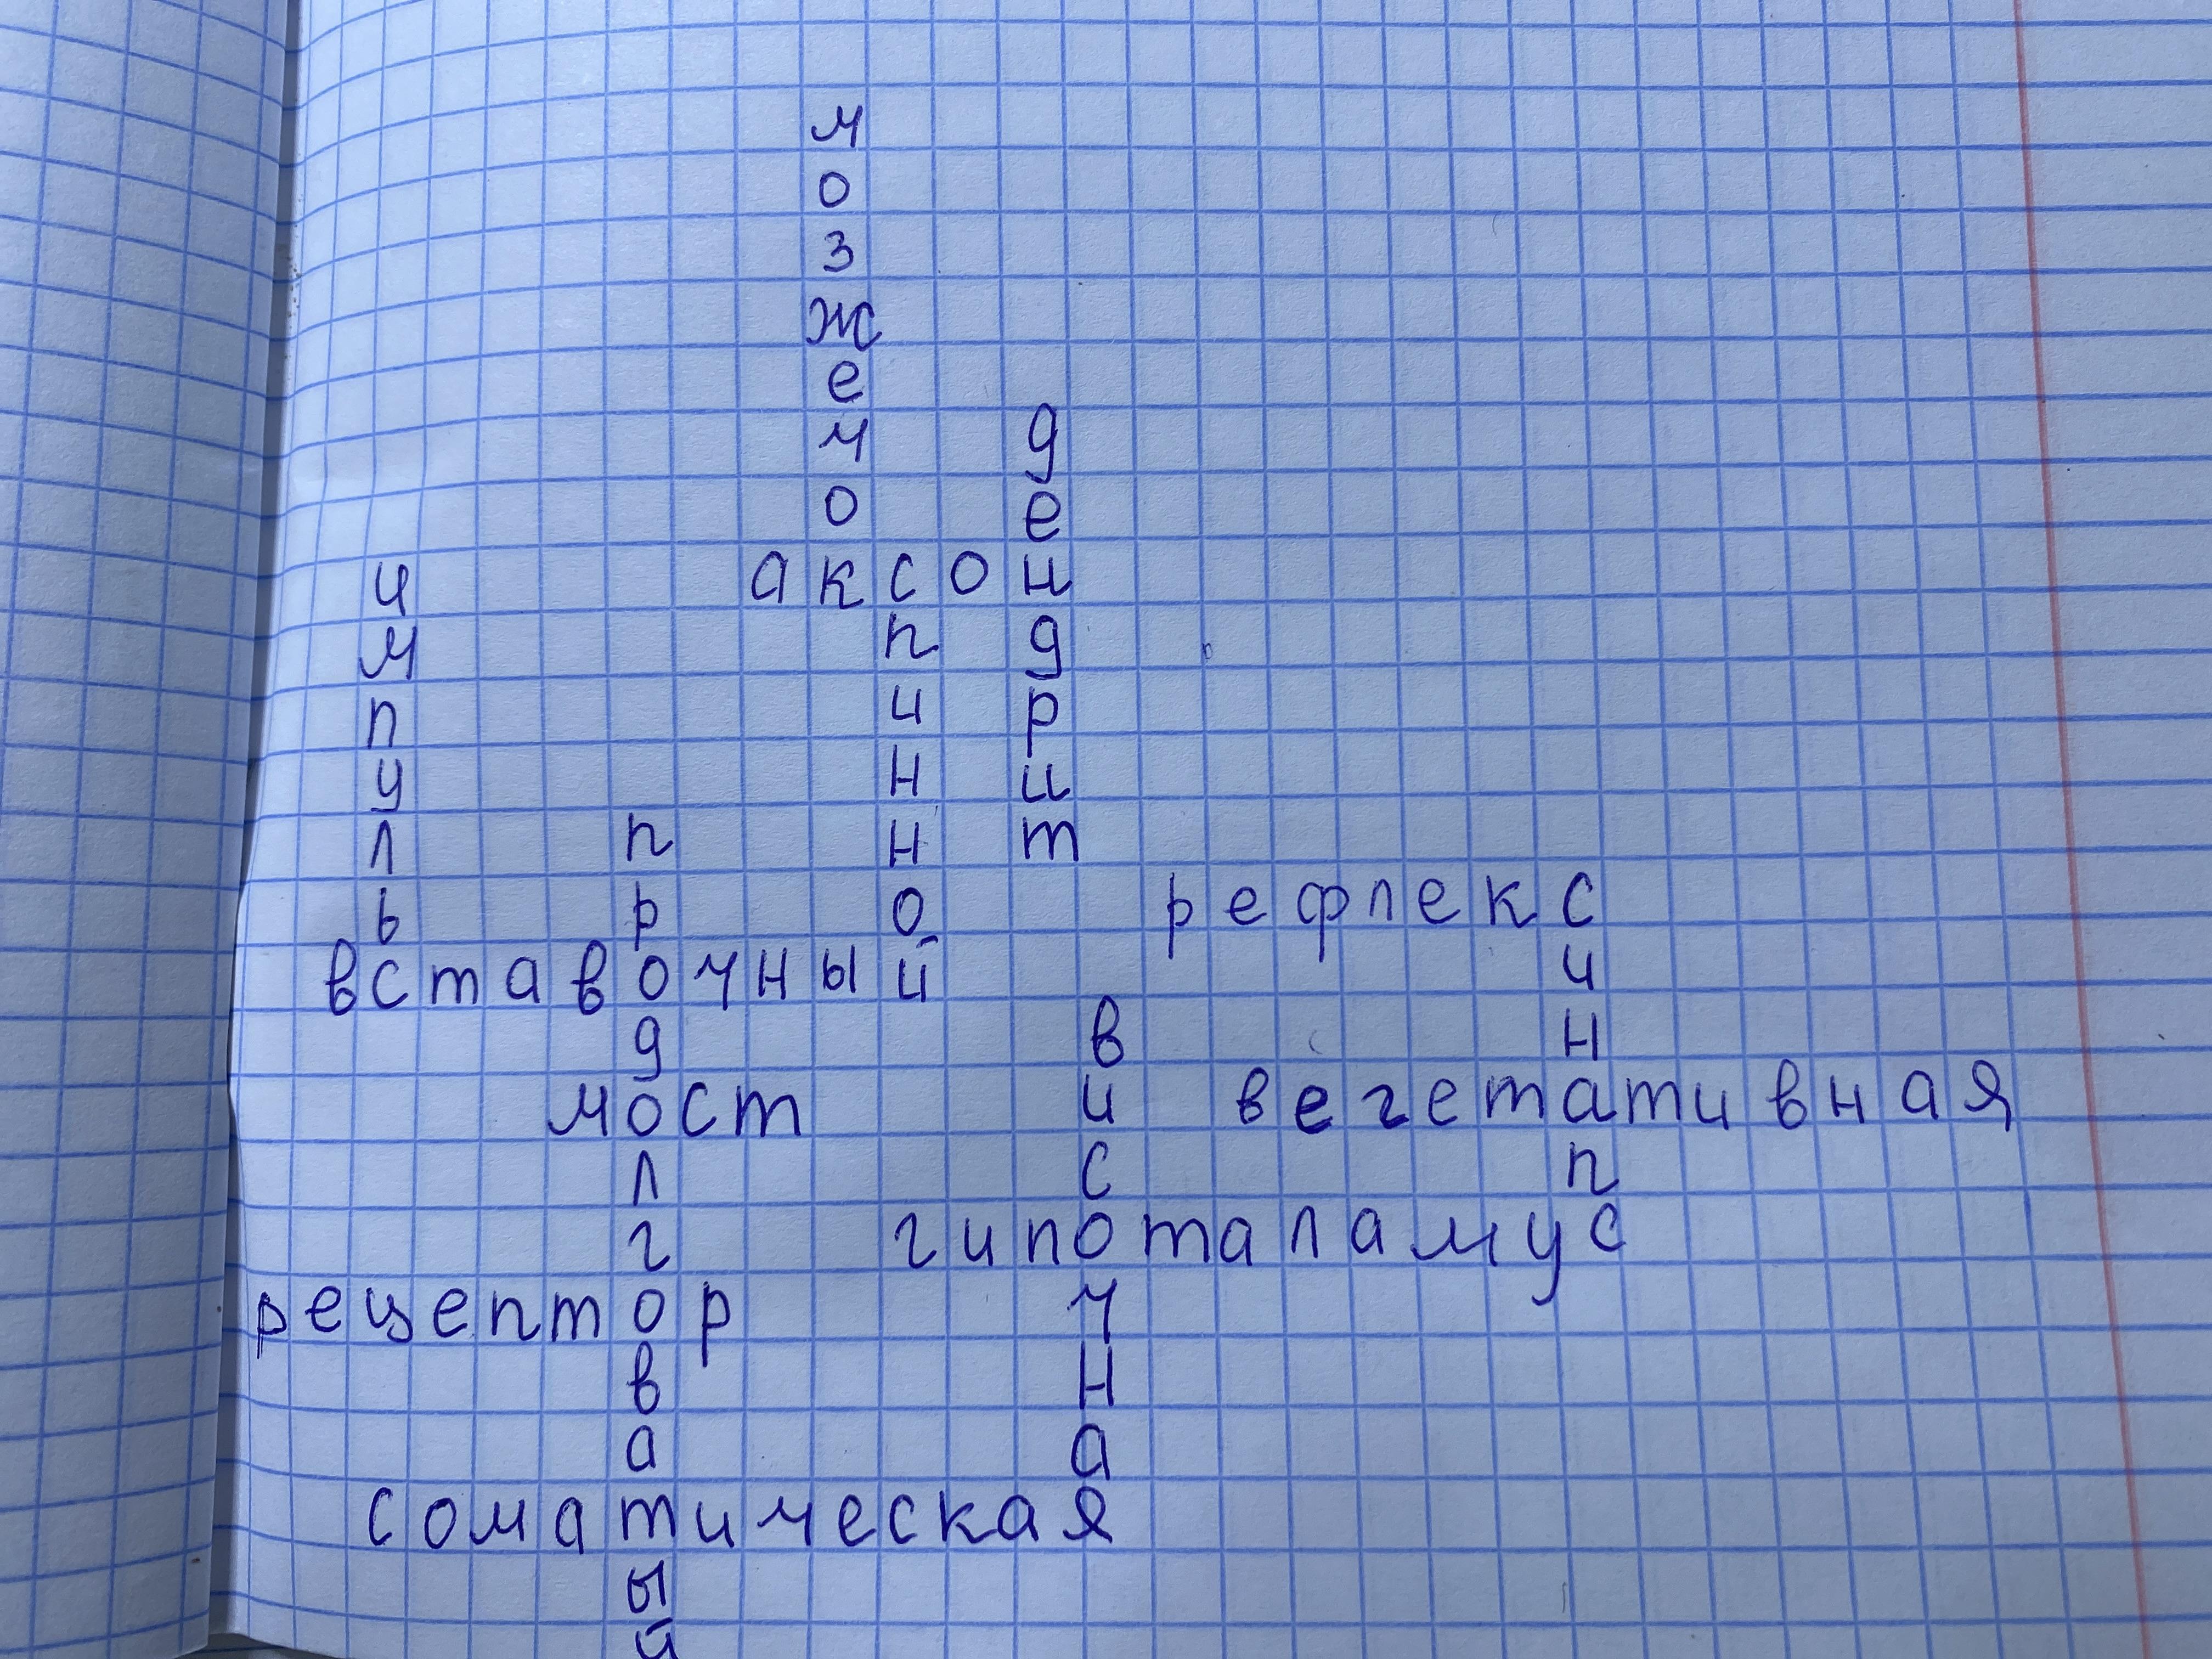 мозжечок
дендрит
импульс
аксон
спинной
продолговатый
рефлекс
синапс
вставочный
височная
мост
вегетативная
гипоталамус
рецептор
соматическая